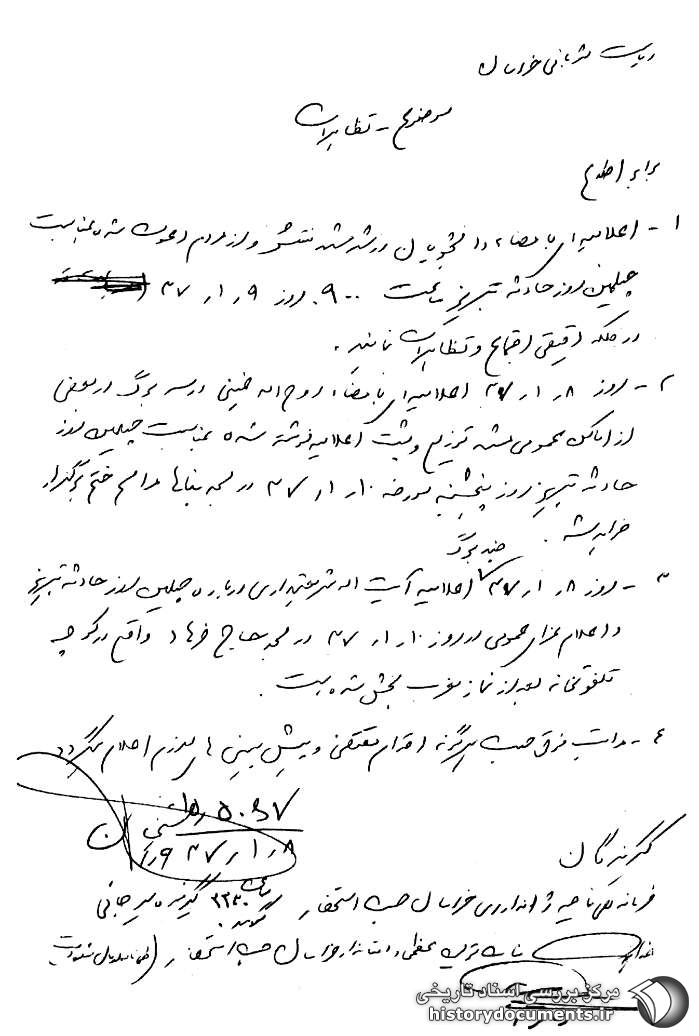 ریاست شهربانی خراسان
موضوع - تظاهرات
برابر اطلاع
۱ - اعلامیه‌ای بامضاء دانشجویان منتشر و از مردم دعوت شده بمناسبت
چهلمین روز حادثه تبریز ساعت ۹۰۰ روز ۹ر۱ر۳۷
در فلکه اجتماع و تظاهرات نمایند.
۲ - روز ۸ر۱ر۳۷ اعلامیه‌ای بامضاء روح اله خمینی در سه برگ در بعضی
از اماکن عمومی مشهد توزیع و پشت اعلامیه نوشته شده بمناسبت چهلمین روز
حادثه تبریز روز پنجشنبه مورخه ۱۰ر۱ر۳۷ در مسجد مراسم ختم برگزار
خواهد شد.
چند برگ
۳ - روز ۸ر۱ر۳۷ اعلامیه آیت اله شریعتمداری درباره چهلمین روز حادثه تبریز
و اعلام عزای عمومی در روز ۱۰ر۱ر۳۷ در مسجد حاج فرهاد واقع در کوچه
تلفونخانه بعد از نماز مغرب پخش شده است.
۴ - مراتب فوق جهت هرگونه اقدام مقتضی و پیش بینی های لازم اعلام میگردد
۵۰۶۷
۸ر۱ر۳۷
گیرندگان
فرمانده ناحیه ژاندارمری خراسان جهت استحضار
ساعت ۲۲۳۰ گیرنده
استاندار خراسان جهت استحضار
مرکز بررسی اسناد تاریخی
historydocuments.ir